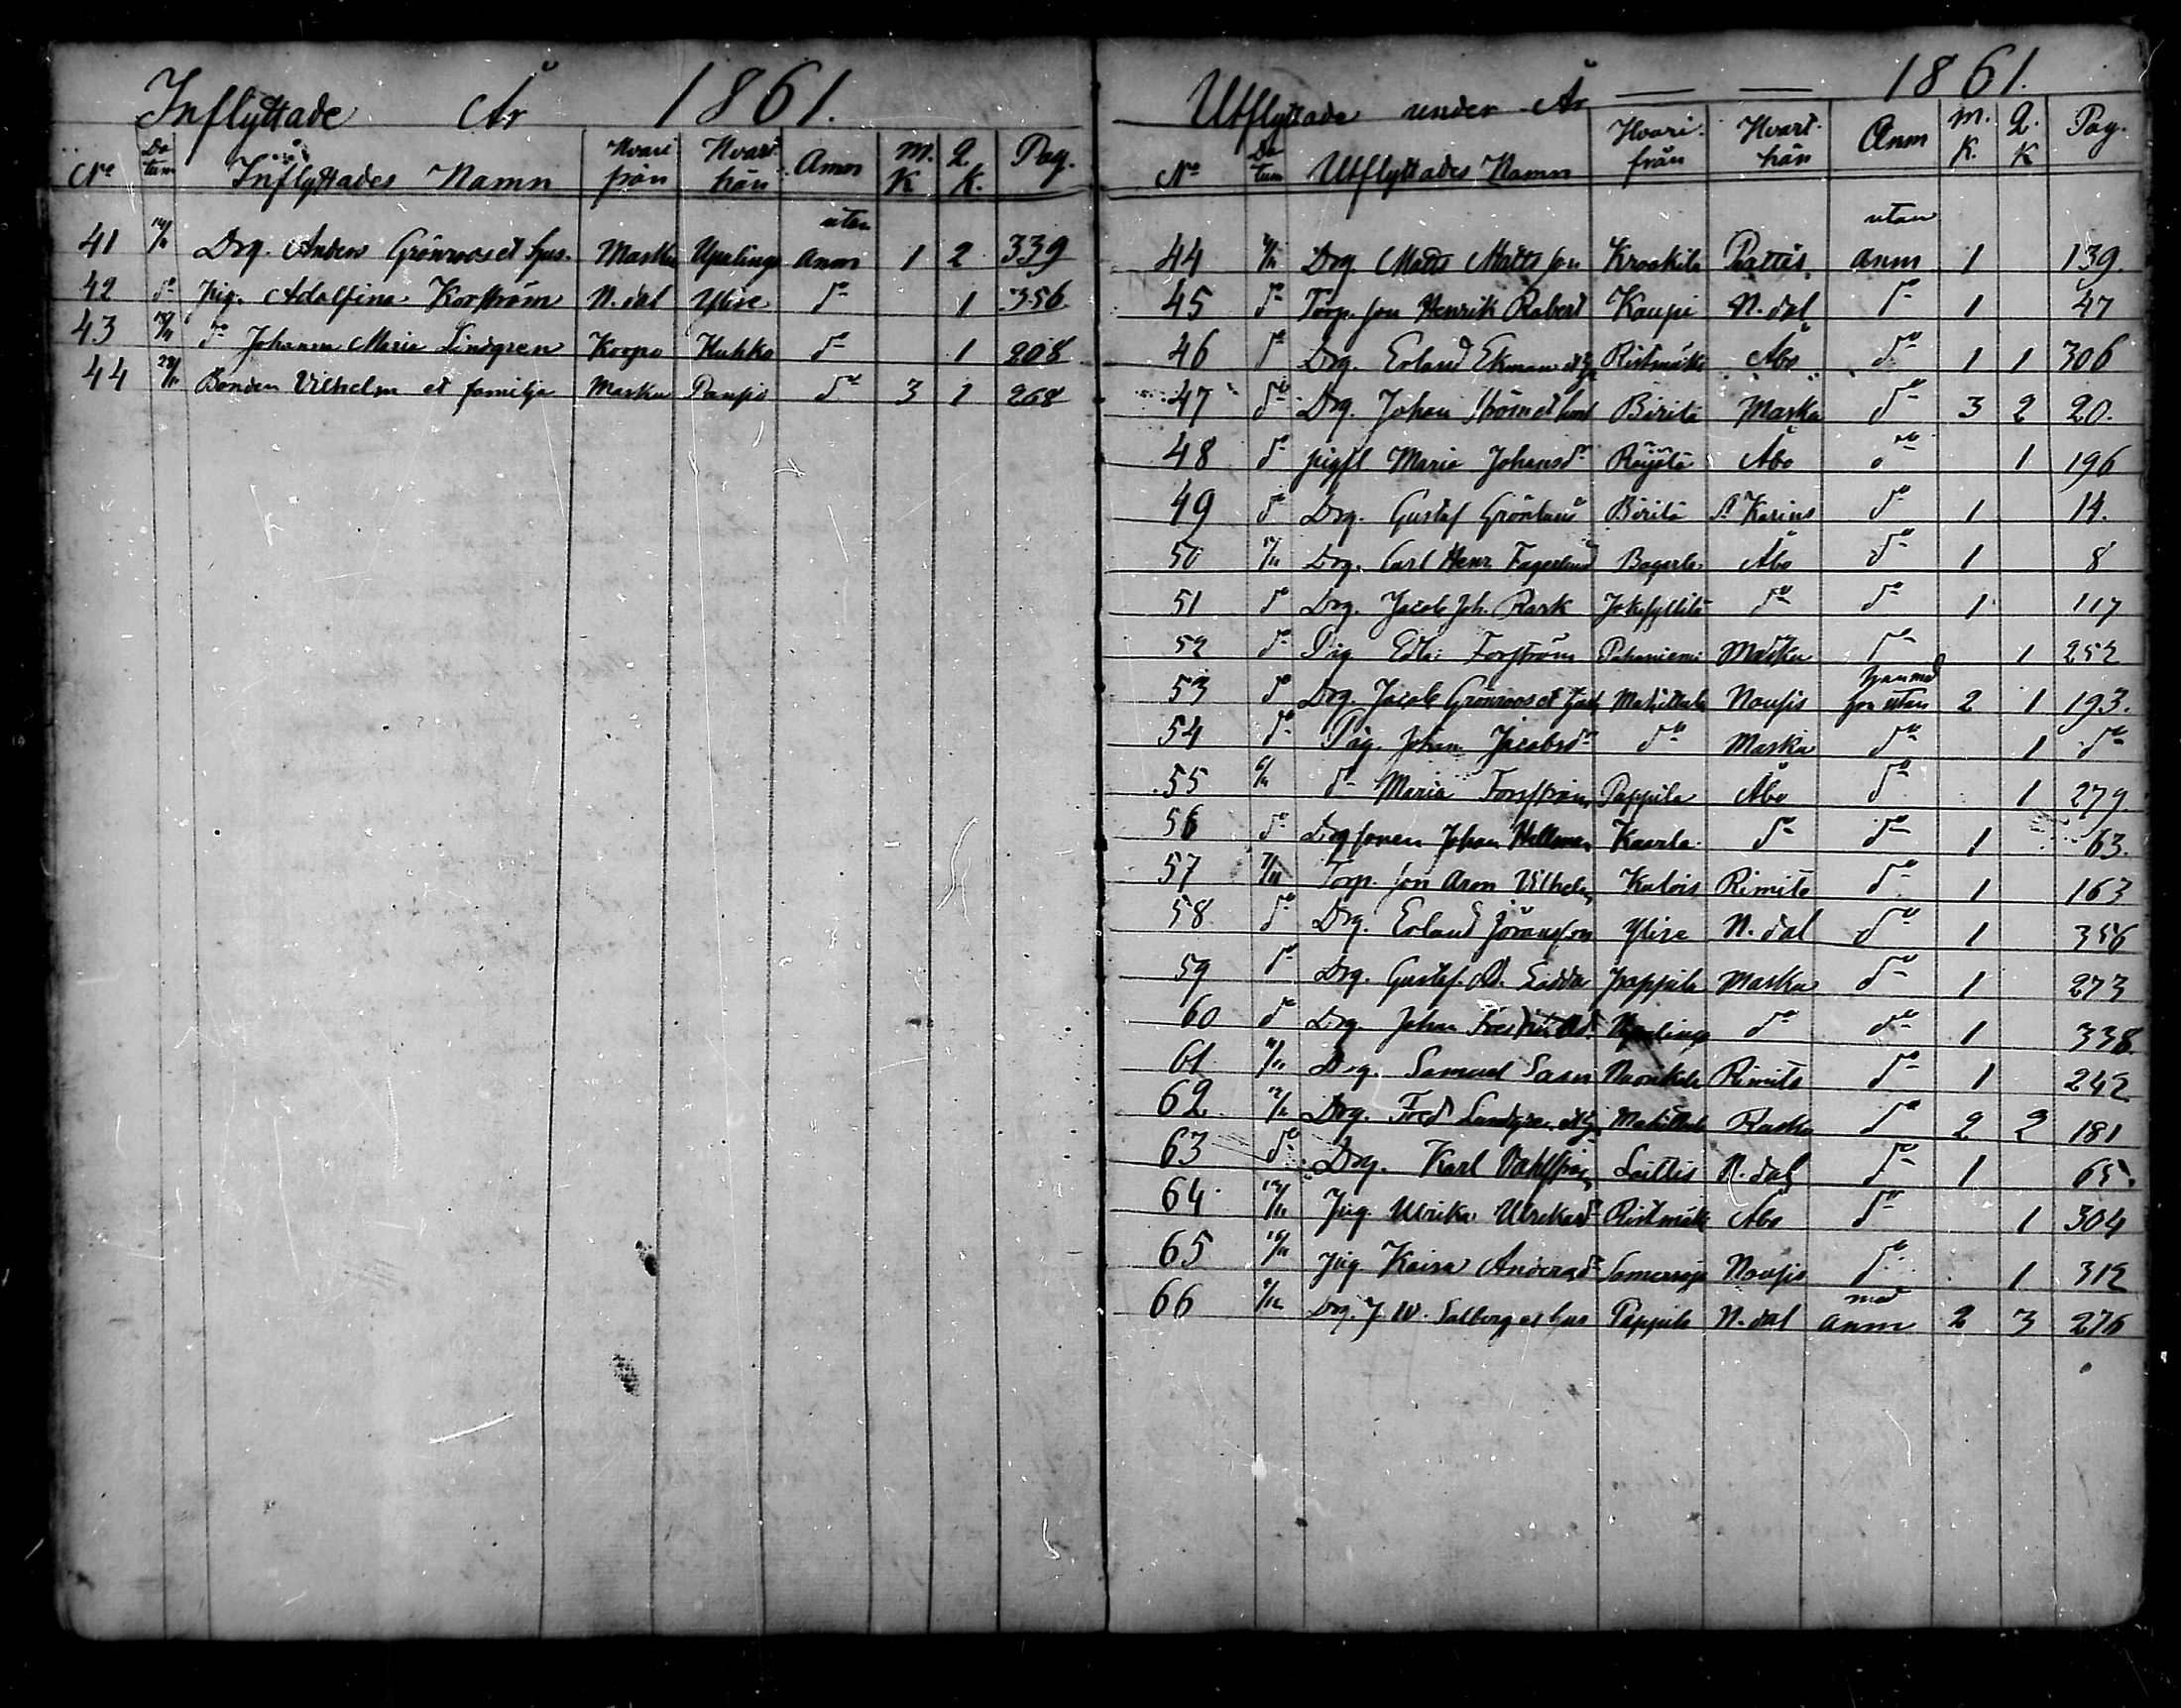 Inflyttade År 1861.
No Datum Inflyttades Namn Hvarifrån Hvart hän Anm M. K Q. K. Pag.
41 Drg. Anders Grönroos et hus. Masku Upalinge utan Anm 1 2 339
42 do Pig. Adolfina Korström N. dal Ylise do 1 356
43 do Johanna Maria Lindgren Korpo Kuhko do 1 208
44 Bonden Vilhelm et familje Masku Paupio do 3 1 268
Utflyttade under År 1861.
No Datum Utflyttades Namn Hvarifrån Hvart hän Anm M. K. Q. K Pag.
44 Drg Matts Mattsson Krookila Pattis utan anm 1 139.
45 do Torp. son Henrik Robert Kaupi N. dal do 1 47
46 do Drg. Erland Ekman Ristmäki Åbo do 1 1 306
47 do Drg. Johan Ström et hust Birilä Masku do 3 2 20.
48 do pigfl Maria Johansdr Röyölä Åbo do 1 196
49 do Drg. Gustaf Grönlund Birilä St Karins do 1 14.
50 Drg. Carl Henr Fagerlund Bagarla Åbo do 1 8
51 do Drg. Jacob Joh. Rask do do 1 117
52 do Pig Edla Forström Pahaniemi Masku do 1 252
53 do Drg. Jacob Grönroos et Mahittula Nousis han med hon utan 2 1 193.
54 do Pig. Johan Jacobsdr do Masku do 1 do
55 6/11 do Maria Forsström Pappila Åbo do 1 279.
56 do Drgsonen Johan Hellman Kaarla do do 1 63.
57 7/11 Torp. son Aron Vilhelm Kulois Rimito do 1 163
58 do Drg. Erland Göransson Ylise N. dal do 1 356
59 do Drg. Gustaf Ad. Pappila Masku do 1 273
60 do Drg. Johan Upalinge do do 1 338.
61 Drg. Samuel Rimito do 1 242
62 Drg. Fred Lundgren Mahittula Rusko do 2 2 181
63 do Drg. Karl Dahlström Soittis N. dal do 1 65.
64 Pig Ulrika Ulriksdr Ristmäki Åbo do 1 304
65 Pig Kaisa Andersdr Nousis do 1 312
66 Drg. J. W. Salberg et hus Pappila N. dal med anm 2 3 276